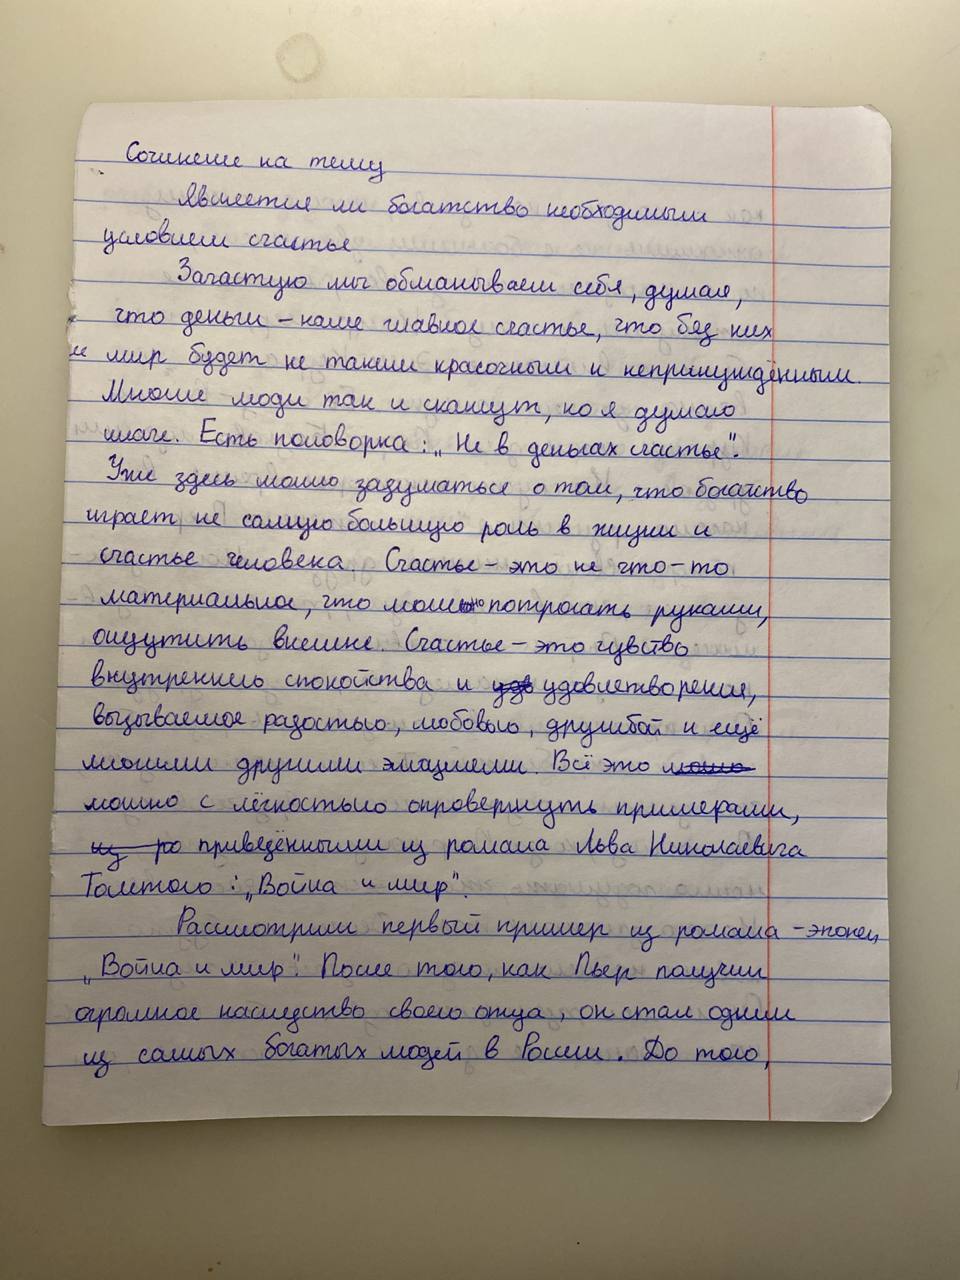 Сочинение на тему
Является ли богатство необходимым
условием счастье
Зачастую мы обманываем себя, думая,
что деньги – наше главное счастье, что без них
и мир будет не таким красочным и непринуждённым.
Многие люди так и скажут, но я думаю
иначе. Есть поговорка: „Не в деньгах счастье".
Уже здесь можно задуматься о том, что богатство
играет не самую большую роль в жизни и
счастье человека. Счастье – это не что-то
материальное, что можно потрогать руками,
ощутить внешне. Счастье – это чувство
внутреннего спокойства и удв удовлетворения,
вызываемое радостью, любовью, дружбой и ещё
многими другими эмоциями. Всё это можно
можно с лёгкостью опровергнуть примерами,
из ро приведёнными из романа Льва Николаевича
Толстого: „Война и мир".
Рассмотрим первый пример из романа – эпопеи
„Война и мир". После того, как Пьер получил
огромное наследство своего отца, он стал одним
из самых богатых людей в России. До того,